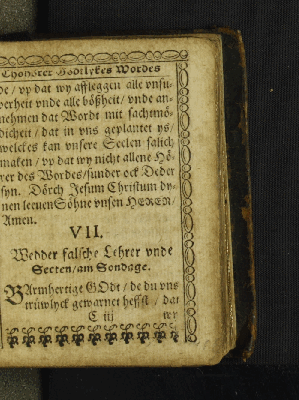 Thohörer Gödtlykes Wordes
de / vp dat wy affleggen alle vnsu-
verheit vnde alle bößheit / vnde an-
nehmen dat Wordt mit sachtmö-
dicheit / dat in vns geplantet ys /
welckes kan vnsere Seelen salich
maken / vp dat wy nicht allene Hö-
rer des Wordes / sunder ock Deder
syn. Dörch Jesum Christum dy-
nen leuen Söhne vnsen HEREN /
Amen.
VII.
Wedder falsche Lehrer vnde
Secten / am Sondage.
BArmhertige GOdt / de du vns
trüwlyck gewarnet heffst / dat
C iij